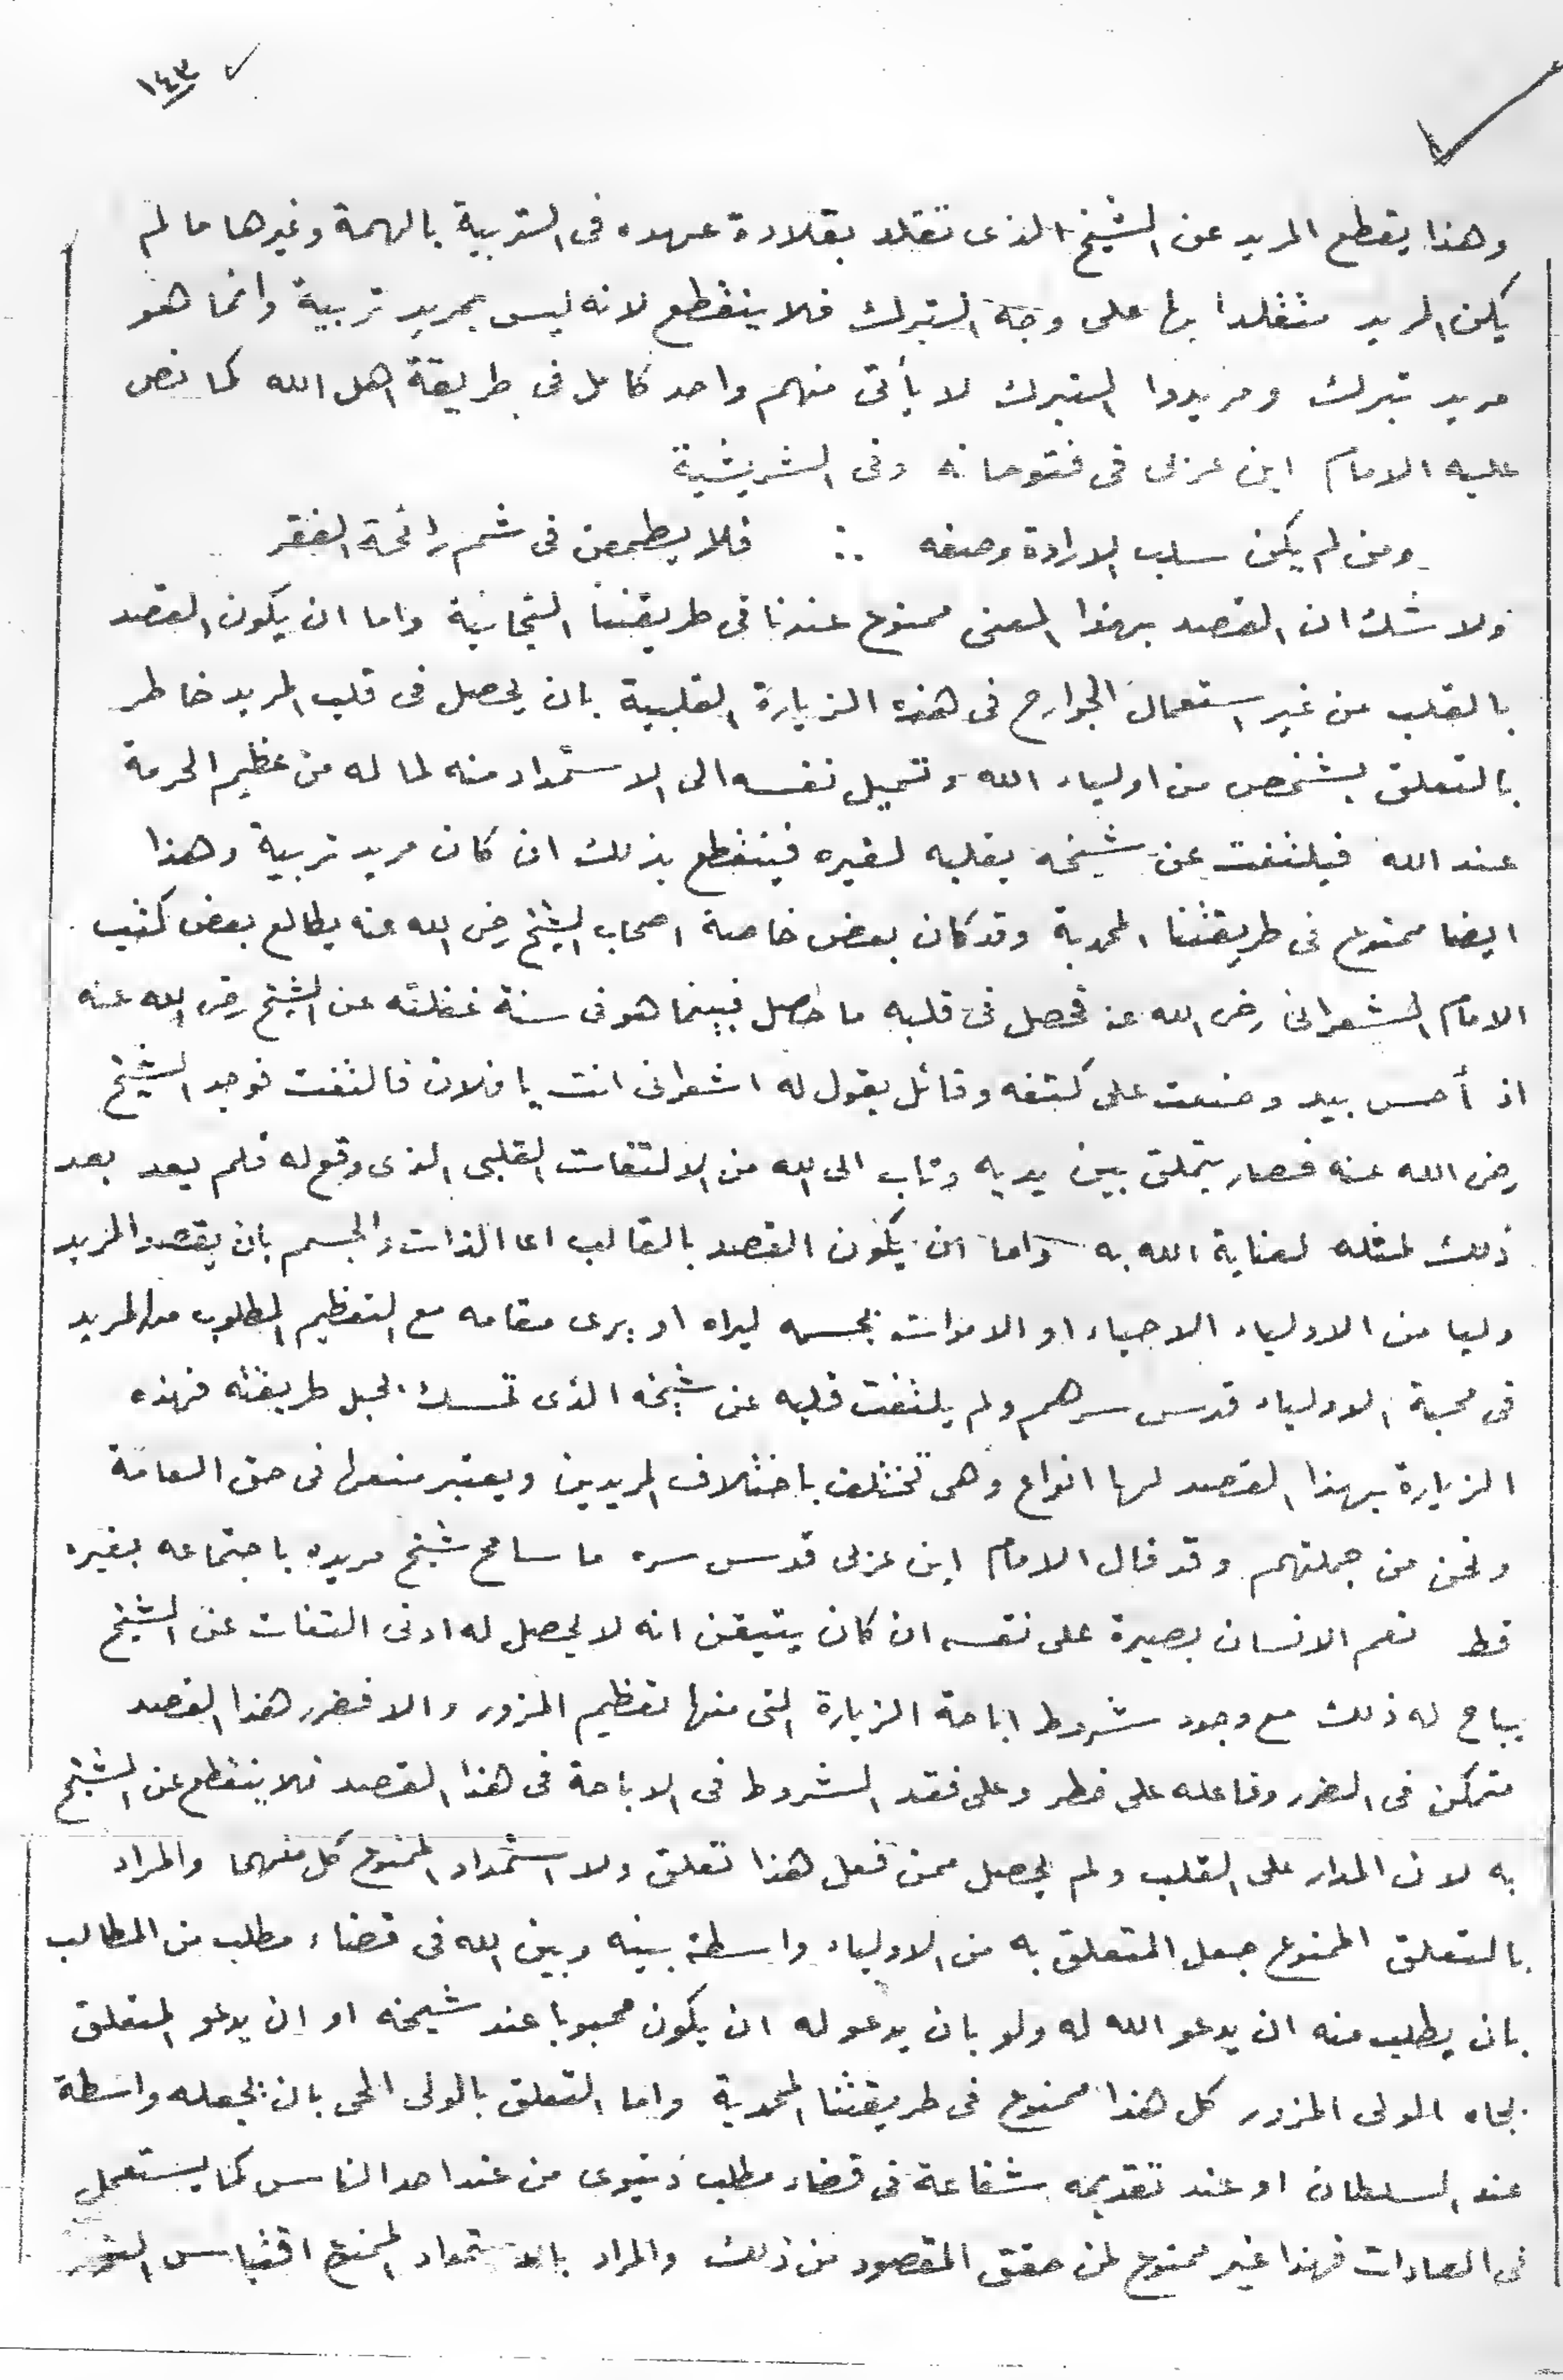 ١٤٣
وهذا يقطع المريد عن الشيخ الذى تقلد بقلادة عهده فى التربية بالهمة وغيرها ما لم
يكن المريد متقلدا بها على وجه التبرك فلا ينقطع لانه ليس بمريد تربية وانما هو
مريد تبرك ومريدوا التبرك لا يأتى منهم واحد كامل فى طريقة اهل الله كما نص
عليه الامام ابن عربى فى فتوحاته وفى الشريشية
ومن لم يكن سلب الارادة وصفه ∴ فلا يطمعن فى شم رائحة الفقر
ولا شك ان القصد بهذا المعنى ممنوع عندنا فى طريقتنا التجانية واما ان يكون القصد
بالقلب من غير استعمال الجوارح فى هذه الزيارة القلبية بان يحصل فى قلب المريد خاطر
بالتعلق بشخص من اولياء الله وتميل نفسه الى الاستمداد منه لما له من عظيم الحرمة
عند الله فيلتفت عن شيخه بقلبه لغيره فينقطع بذلك ان كان مريد تربية وهذا
ايضا ممنوع فى طريقتنا المحمدية وقد كان بعض خاصة اصحاب الشيخ رضى الله عنه يطالع بعض كتب
الامام الشعرانى رضى الله عنه فحصل فى قلبه ما حصل فبينما هو فى سنة غفلته عن الشيخ رضى الله عنه
اذ أحس بيد وضعت على كتفه وقائل يقول له اشعرانى انت يا فلان فالتفت فوجد الشيخ
رضى الله عنه فصار يتملق بين يديه وتاب الى الله من الالتفات القلبى الذى وقع له فلم يعد بعد
ذلك لمثله لعناية الله به واما ان يكون القصد بالقالب اعا الذات والجسم بان يقصد المريد
وليا من الاولياء الاحياء او الاموات بجسمه ليراه او يرى مقامه مع التعظيم المطلوب من المريد
فى محبة الاولياء قدس سرهم ولم يلتفت قلبه عن شيخه الذى تمسك بحبل طريقته فهذه
الزيارة بهذا القصد لها انواع وهى تختلف باختلاف المريدين ويعتبر منعها فى حق العامة
ونحن من جملتهم وقد قال الامام ابن عربى قدس سره ما سامح شيخ مريده باجتماعه بغيره
قط نعم الانسان بصيرة على نفسه ان كان يتيقن انه لا يحصل له ادنى التفات عن الشيخ
يباح له ذلك مع وجود شروط اباحة الزيارة التى منها تعظيم المزور والا فضرر هذا القصد
متمكن فى الضرر وفاعله على خطر وعلى فقد الشروط فى الاباحة فى هذا القصد فلا ينقطع عن الشيخ
به لان المدار على القلب ولم يحصل ممن فعل هذا تعلق ولا استمداد الممنوع كل منهما والمراد
بالتعلق الممنوع جعل المتعلق به من الاولياء واسطة بينه وبين الله فى قضاء مطلب من المطالب
بان يطلب منه ان يدعو الله له ولو بان يدعو له ان يكون محبوبا عند شيخه او ان يدعو المتعلق
بجاه المولى المزور كل هذا ممنوع فى طريقتنا المحمدية واما التعلق بالولى الحى بان يجعله واسطة
عند السلطان او عند تقديمه شفاعة فى قضاء مطلب دنيوى من عند احد الناس كما يستعمل
فى العادات فهذا غير ممنوع لمن حقق المقصود من ذلك والمراد بالاستمداد الممنوع اقتباس